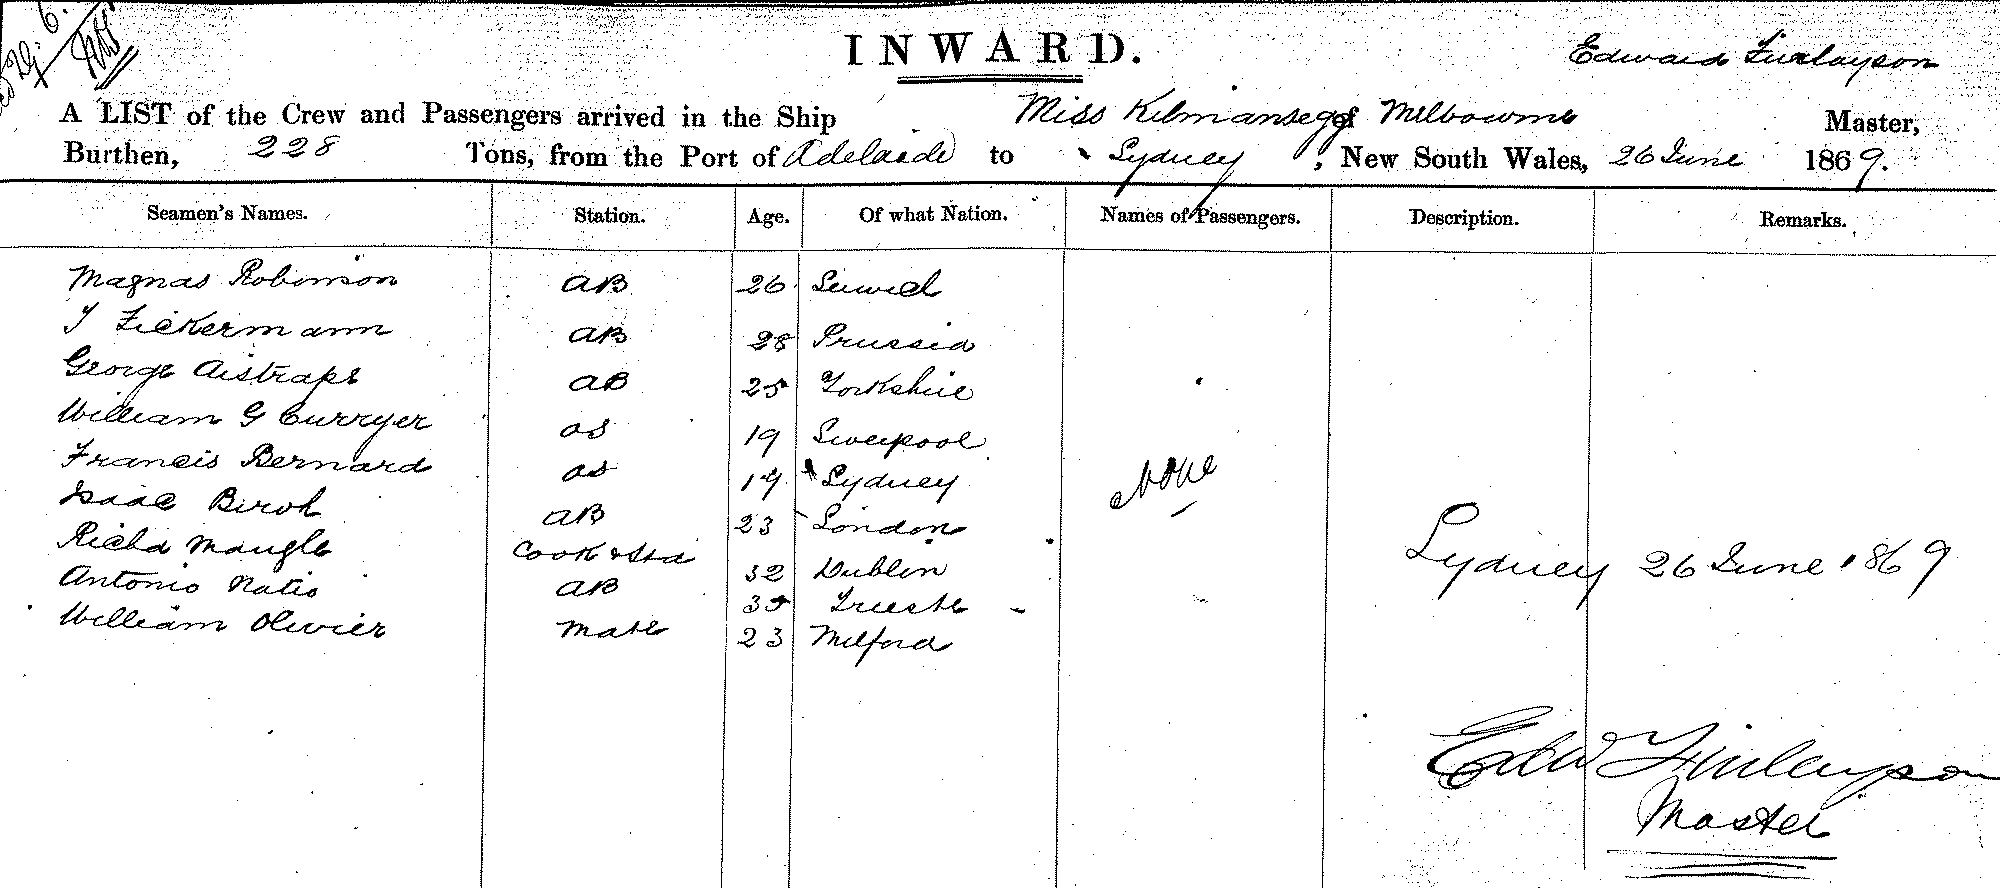 INWARD.
Edward Finlayson
A LIST of the Crew and Passengers arrived in the Ship Miss Kilmansegg of Melbourne Master,
Burthen, 228 Tons, from the Port of Adelaide to Sydney, New South Wales, 26 June 1869.
Seamen's Names. Station. Age. Of what Nation. Names of Passengers. Description. Remarks.
Magnas Robinson AB 26 Lerwick
J Fickermann AB 28 Prussia
George Aistraps AB 25 Yorkshire
William G Curryer OS 19 Liverpool
Francis Bernard OS 19 Sydney
None
Isaac Birch AB 23 London
Richd Maugle Cook & Std 32 Dublin
Sydney 26 June 1869
Antonio Natio AB 35 Trieste
William Olivier Mate 23 Milford
Edw Finlayson
Master